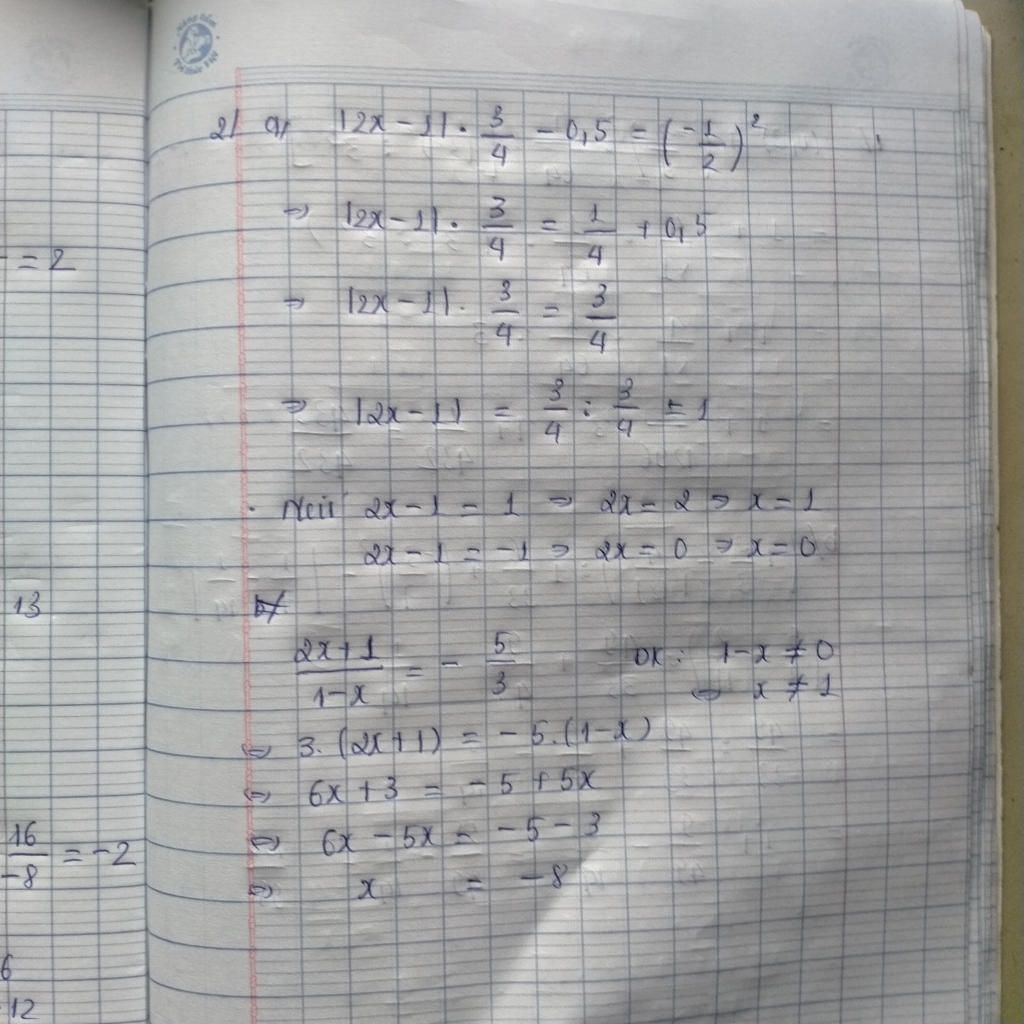 = 2
13
16/-8 = -2
6
12
2) a) |2x - 1| . 3/4 - 0,5 = (-1/2)²
=> |2x - 1| . 3/4 = 1/4 + 0,5
=> |2x - 1| . 3/4 = 3/4
=> |2x - 1| = 3/4 : 3/4 = 1
. Nếu 2x - 1 = 1 => 2x = 2 => x = 1
2x - 1 = -1 => 2x = 0 => x = 0
b)
(2x + 1)/(1 - x) = - 5/3 ĐK: 1 - x ≠ 0
<=> x ≠ 1
<=> 3. (2x + 1) = - 5. (1 - x)
<=> 6x + 3 = - 5 + 5x
<=> 6x - 5x = - 5 - 3
<=> x = -8